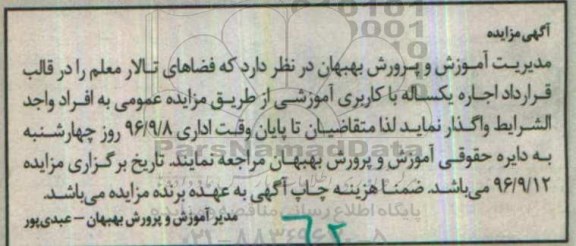 آگهی مزایده
مدیریت آموزش و پرورش بهبهان در نظر دارد که فضاهای تالار معلم را در قالب
قرارداد اجاره یکساله با کاربری آموزشی از طریق مزایده عمومی به افراد واجد
الشرایط واگذار نماید لذا متقاضیان تا پایان وقت اداری ۹۶/۹/۸ روز چهارشنبه
به دایره حقوقی آموزش و پرورش بهبهان مراجعه نمایند. تاریخ برگزاری مزایده
۹۶/۹/۱۲ می‌باشد. ضمنا هزینه چاپ آگهی به عهده برنده مزایده می‌باشد.
مدیر آموزش و پرورش بهبهان – عبدی‌پور
ParsNamadData
پایگاه اطلاع رسانی
۶۲